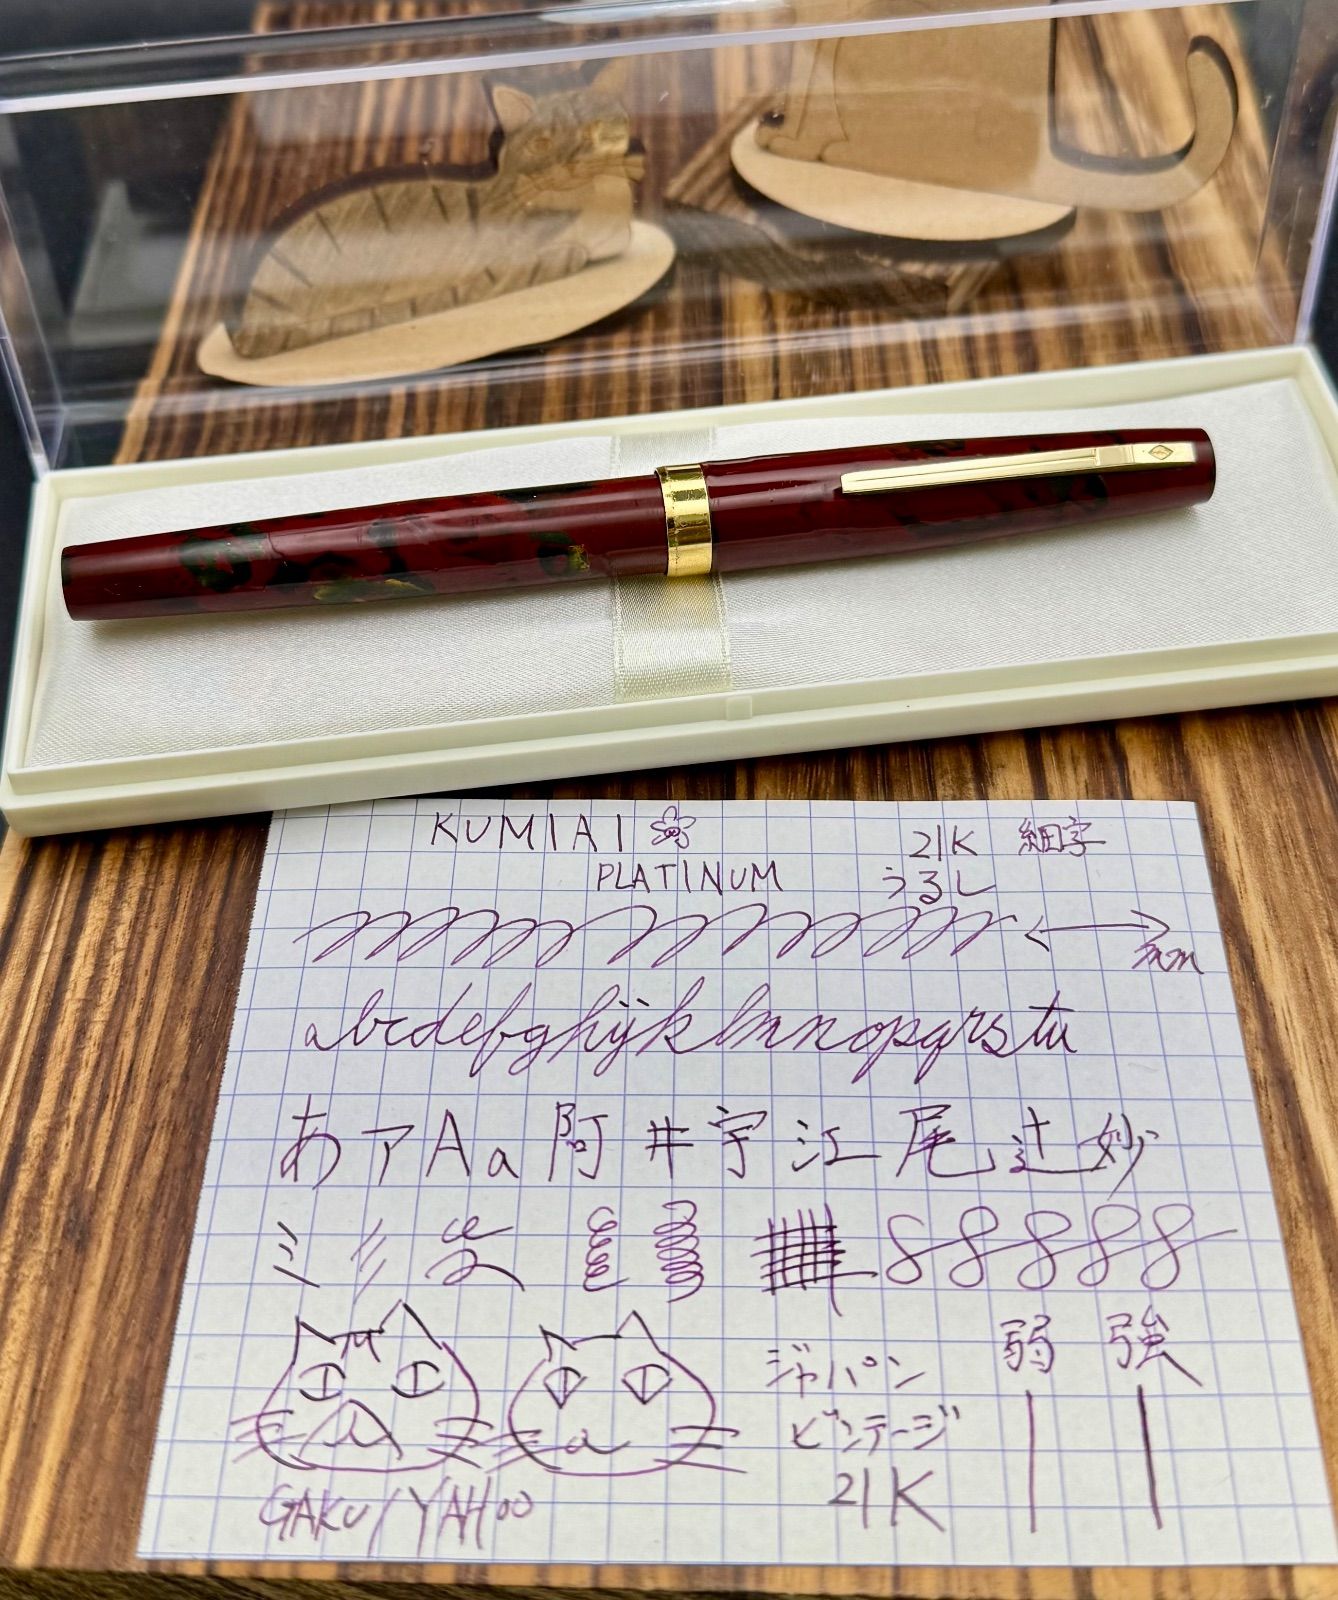 KUMIAI 21K 細字
PLATINUM うるし
mm
abcdefghijklmnopqrstu
あアAa阿井宇江尾辻妙
弱 強
ジャパン
ビンテージ
21K
GAKU/YAHOO